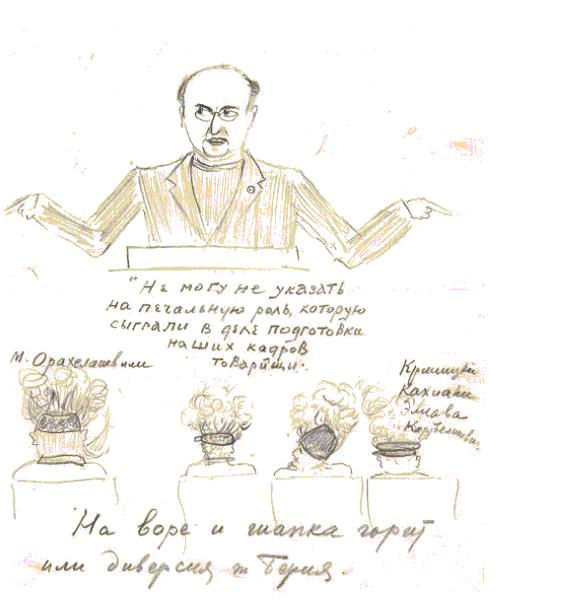 "Не могу не указать
на печальную роль, которую
сыграли в деле подготовки
наших кадров
товарищи:
М. Орахелашвили
Кахиани
Элиава
На воре и шапка горит
или диверсия т Берия